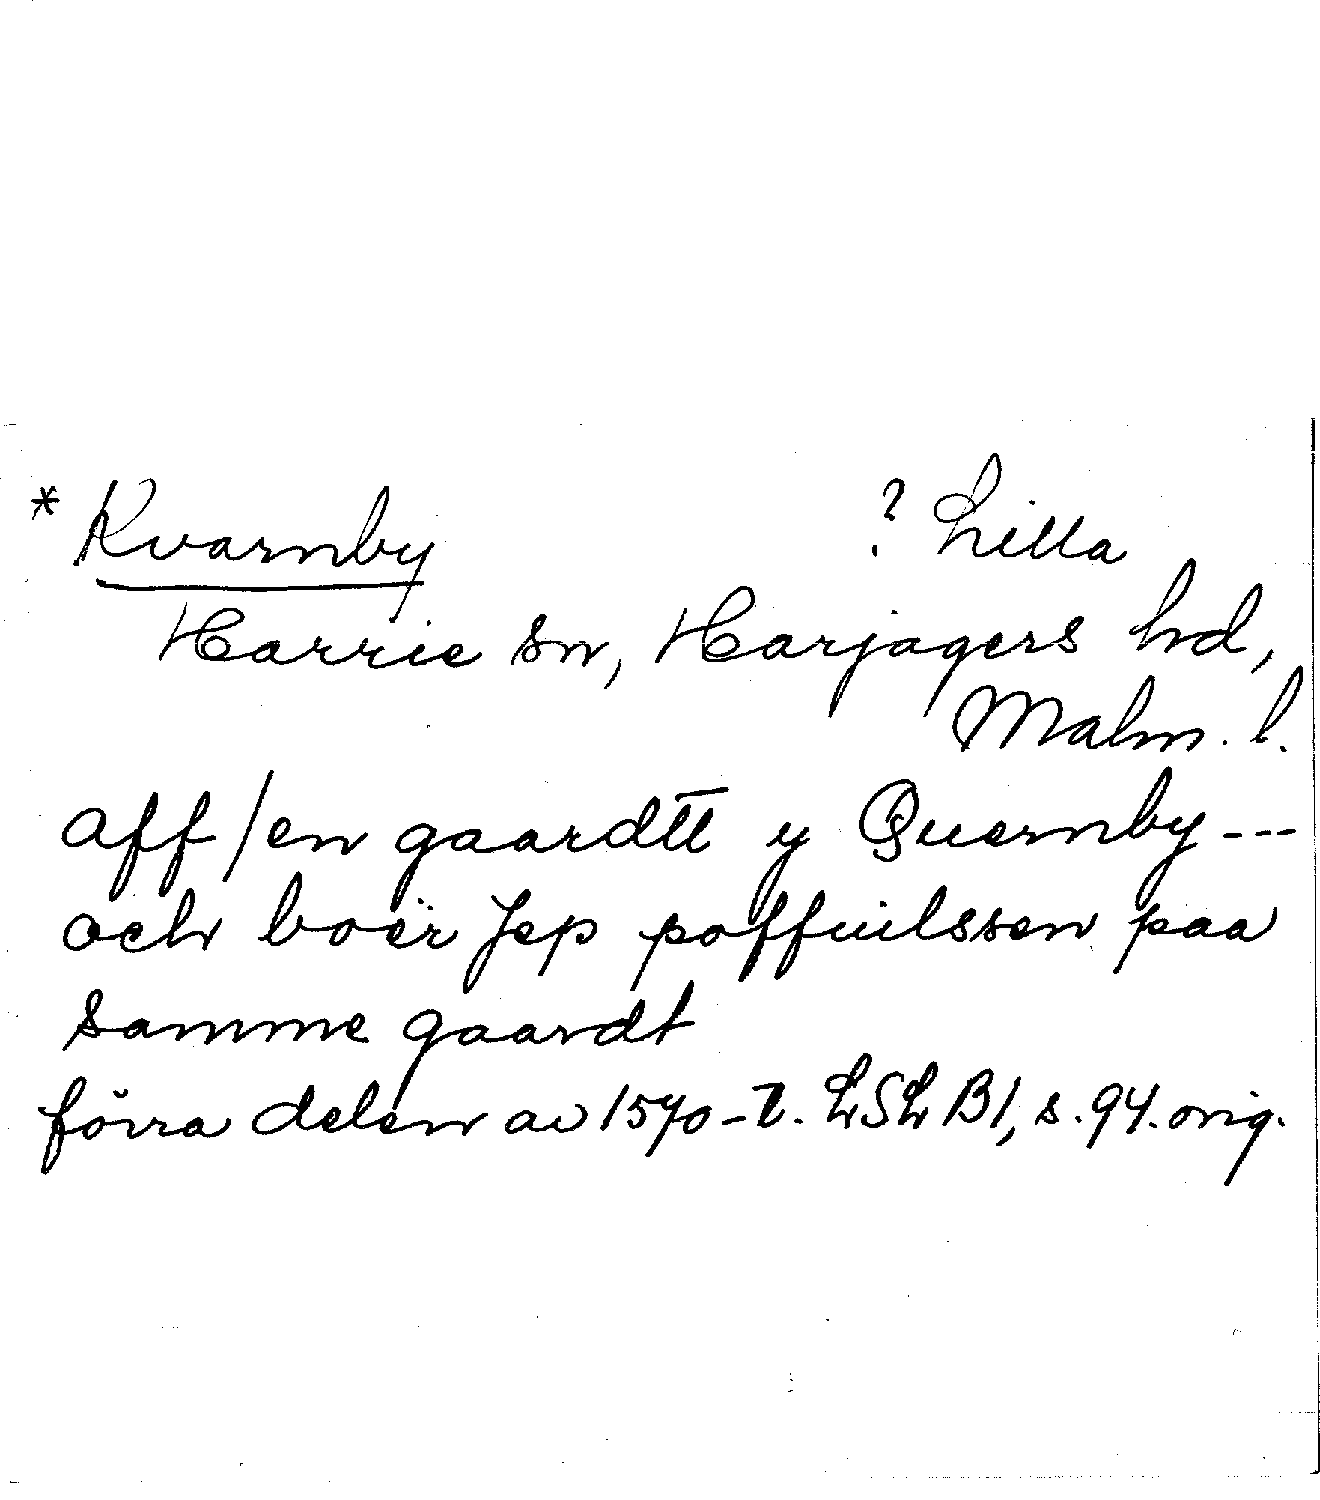 * Kvarnby ? Lilla
Harrie sn, Harjagers hd,
Malm. l.
aff/en gaardtt y Quernby---
och boër Jep poffuilssen paa
samme gaardt
förra delen av 1570-t. LSL B1, s. 94. orig.